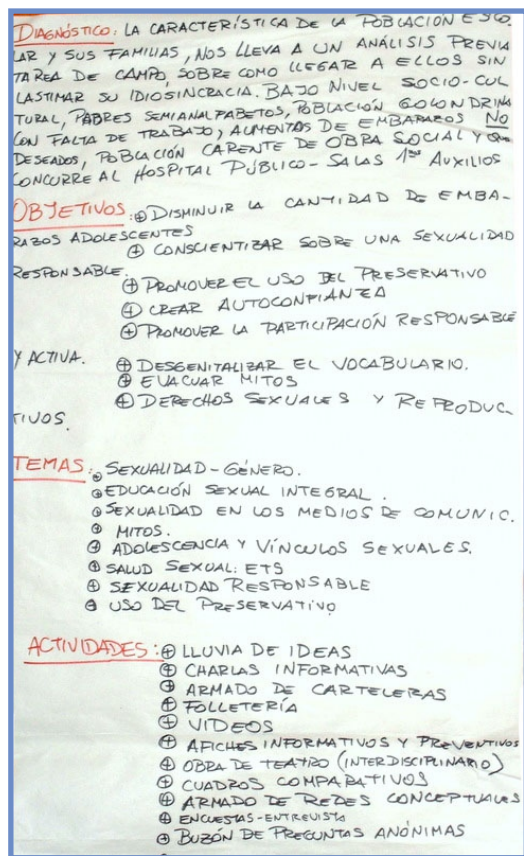 DIAGNÓSTICO: LA CARACTERÍSTICA DE LA POBLACIÓN ESCO
LAR Y SUS FAMILIAS, NOS LLEVA A UN ANÁLISIS PREVIA
TAREA DE CAMPO, SOBRE COMO LLEGAR A ELLOS SIN
LASTIMAR SU IDIOSINCRACIA. BAJO NIVEL SOCIO-CUL
TURAL, PADRES SEMIANALFABETOS, POBLACIÓN GOLONDRINA
CON FALTA DE TRABAJO, AUMENTOS DE EMBARAZOS NO
DESEADOS, POBLACIÓN CARENTE DE OBRA SOCIAL Y QUE
CONCURRE AL HOSPITAL PÚBLICO - SALAS 1ros AUXILIOS
OBJETIVOS: ⊕ DISMINUIR LA CANTIDAD DE EMBA-
RAZOS ADOLESCENTES
⊕ CONSCIENTIZAR SOBRE UNA SEXUALIDAD
RESPONSABLE.
⊕ PROMOVER EL USO DEL PRESERVATIVO
⊕ CREAR AUTOCONFIANZA
⊕ PROMOVER LA PARTICIPACIÓN RESPONSABLE
Y ACTIVA.
⊕ DESGENITALIZAR EL VOCABULARIO.
⊕ EVACUAR MITOS
⊕ DERECHOS SEXUALES Y REPRODUC
TIVOS.
TEMAS: ⊕ SEXUALIDAD - GÉNERO.
⊕ EDUCACIÓN SEXUAL INTEGRAL.
⊕ SEXUALIDAD EN LOS MEDIOS DE COMUNIC.
⊕ MITOS.
⊕ ADOLESCENCIA Y VÍNCULOS SEXUALES.
⊕ SALUD SEXUAL: ETS
⊕ SEXUALIDAD RESPONSABLE
⊕ USO DEL PRESERVATIVO
ACTIVIDADES: ⊕ LLUVIA DE IDEAS
⊕ CHARLAS INFORMATIVAS
⊕ ARMADO DE CARTELERAS
⊕ FOLLETERÍA
⊕ VIDEOS
⊕ AFICHES INFORMATIVOS Y PREVENTIVOS
⊕ OBRA DE TEATRO (INTERDISCIPLINARIO)
⊕ CUADROS COMPARATIVOS
⊕ ARMADO DE REDES CONCEPTUALES
⊕ ENCUESTAS-ENTREVISTA
⊕ BUZÓN DE PREGUNTAS ANÓNIMAS